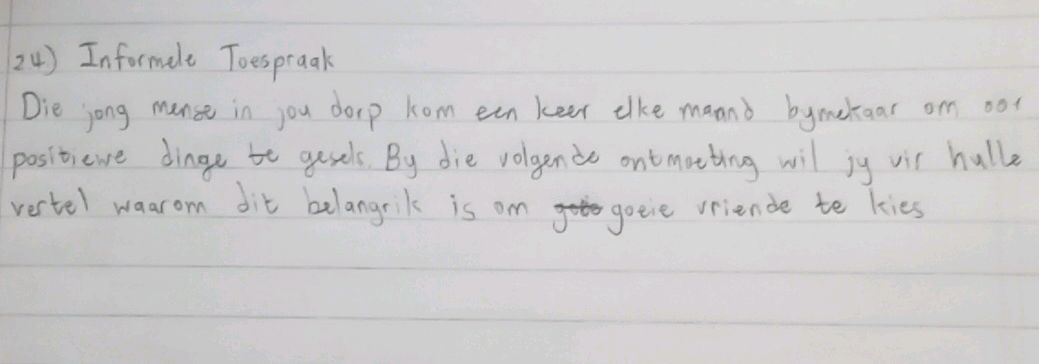 24) Informele Toespraak
Die jong mense in jou dorp kom een keer elke maand bymekaar om oor
positiewe dinge te gesels. By die volgende ontmoeting wil jy vir hulle
vertel waarom dit belangrik is om goeie vriende te kies